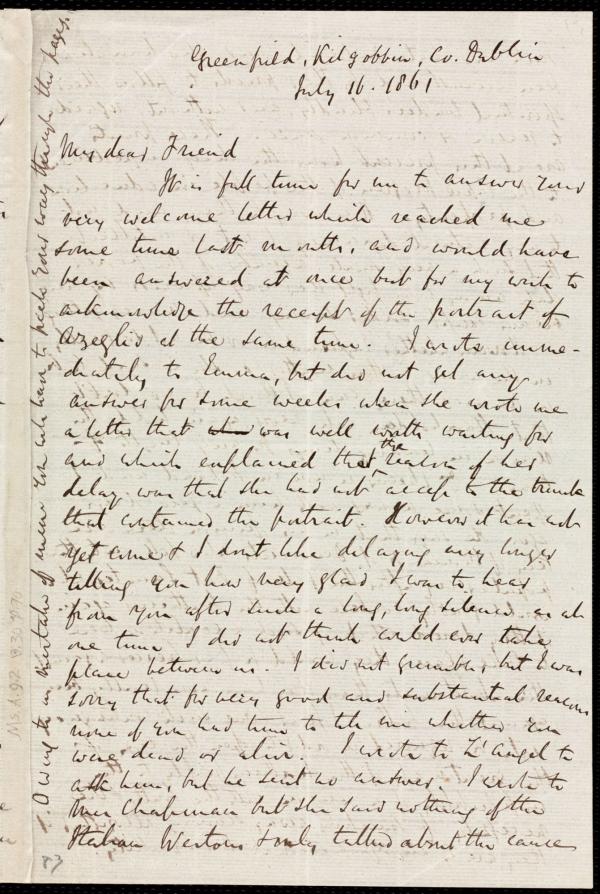 Greenfield, Kilgobbin, Co. Dublin
July 16. 1861
My dear Friend
It is full time for me to answer your
very welcome letter which reached me
some time last month, and would have
been answered at once but for my wish to
acknowledge the receipt of the portrait of
Azeglio at the same time. I wrote imme-
diately to Emma, but did not get any
answer for some weeks when she wrote me
a letter that was well worth waiting for
and which explained that the reason of her
delay was that she had not access to the trunk
that contained the portrait. However it has not
yet come & I dont like delaying any longer
telling you how very glad I was to hear
from you after such a long, long silence as at
one time I did not think could ever take
place between us. I did not grumble, but I was
sorry that for very good and substantial reasons
none of you had time to tell me whether you
were dead or alive. I wrote to L'Angel to
ask him, but he sent no answer. I wrote to
Mrs Chapman but she said nothing of the
Italian Westons & only talked about the cause
Owing to a mistake of mine you will have to pick your way through the pages.
Ms. A. 9.2
83